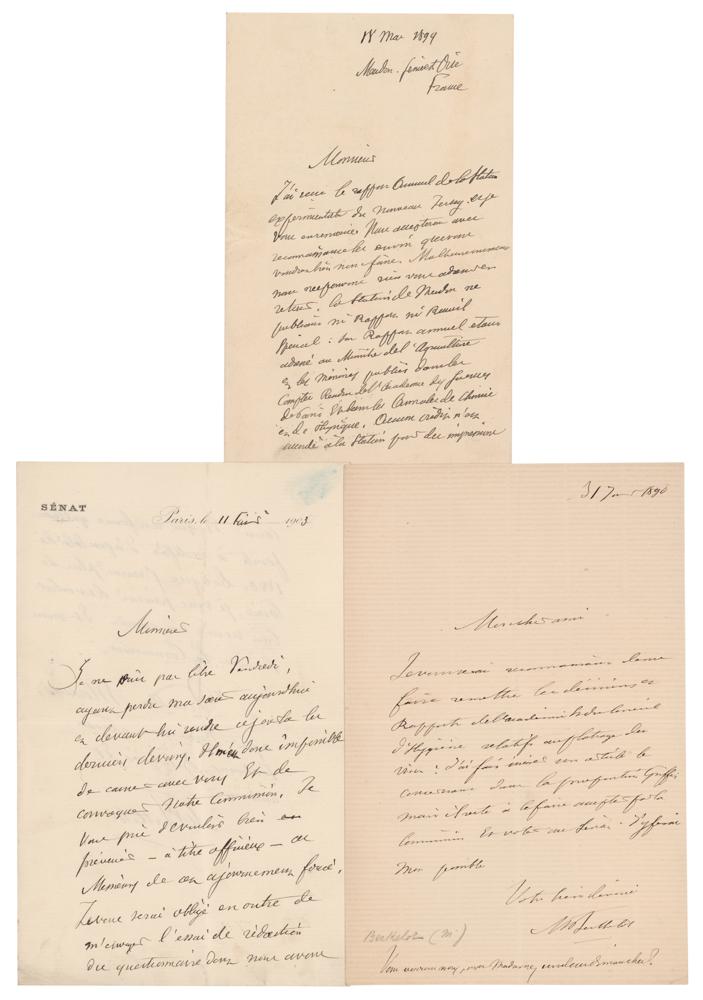 18 Mai 1894
Meudon. Seine et Oise
France
Monsieur
J'ai reçu le rapport Annuel de la Station
expérimentale du Nouveau Jersey et je
vous en remercie. Nous accepterons avec
reconnaissance les envois que vous
voudrez bien nous faire. Malheureusement
nous ne pouvons rien vous adresser en
retour. La Station de Meudon ne
publiant ni Rapport ni Recueil
spécial : son Rapport annuel est
adressé au Ministre de l'Agriculture
et les mémoires publiés dans les
Comptes Rendus de l'Académie des Sciences
de Paris et dans les Annales de Chimie
et de Physique. Aucun crédit n'est
accordé à la Station pour des impressions
SÉNAT
Paris, le 11 1903
Monsieur
Je ne puis pas être Vendredi,
ayant perdu ma sœur aujourd'hui
et devant lui rendre ce jour là les
derniers devoirs. Il m'est donc impossible
de causer avec vous et de
convoquer notre Commission. Je
vous prie de vouloir bien en
prévenir – à titre officieux – ces
Messieurs de cet ajournement forcé.
Je vous serai obligé en outre de
m'envoyer l'essai de rédaction
du questionnaire dont nous avons
31 1890
Mon cher ami
Je vous serai reconnaissant de me
faire remettre les décisions et
Rapports de l'académie et du Conseil
d'Hygiène relatifs au plâtrage des
vins : J'ai fait insérer un article le
concernant dans la proposition Griffe
mais il reste à la faire accepter par la
commission et voter au Sénat. J'y ferai
mon possible
Votre bien dévoué
M Berthelot
Berthelot (M)
Vous verrons nous, avec Madame, un de ces dimanches?